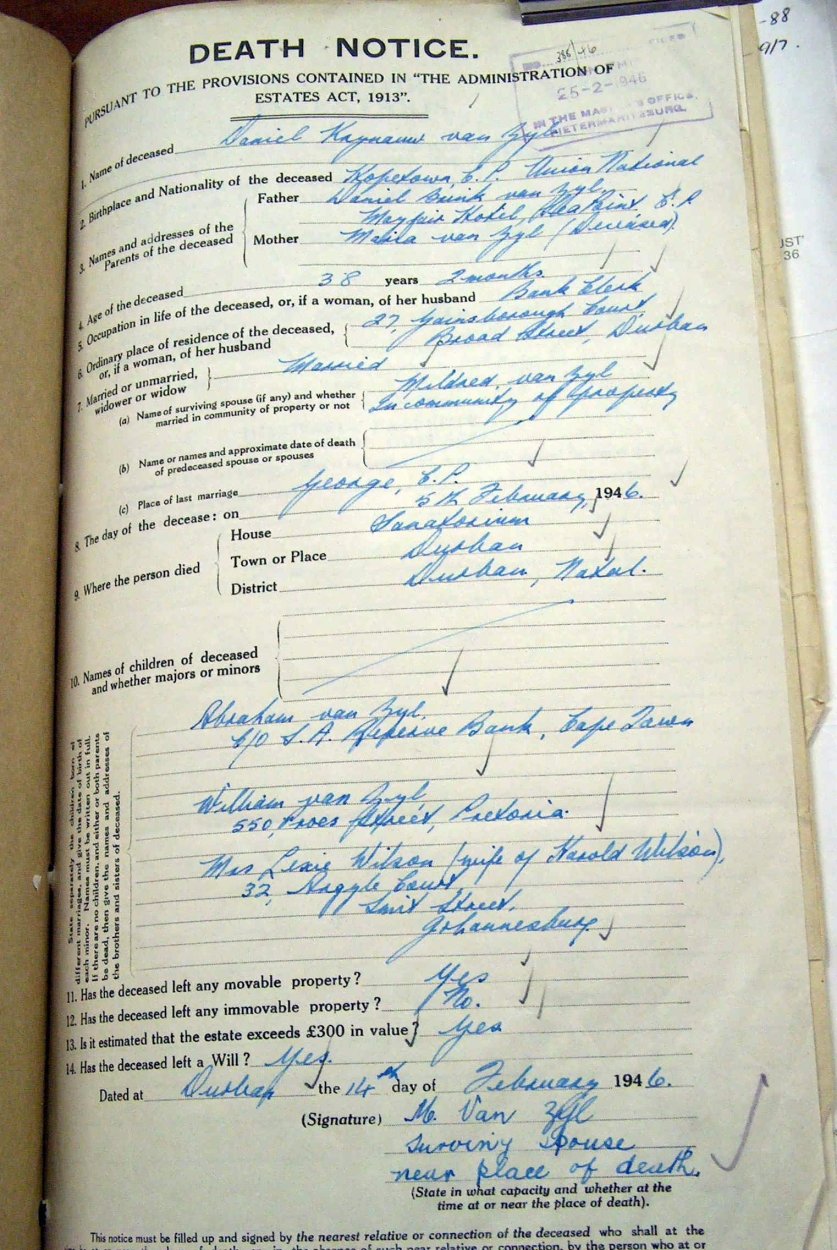 -88
9/7.
DEATH NOTICE.
PURSUANT TO THE PROVISIONS CONTAINED IN "THE ADMINISTRATION OF
ESTATES ACT, 1913".
NO. 386/46
25-2-1946
IN THE MASTER'S OFFICE,
PIETERMARITZBURG.
1. Name of deceased Daniel van Zyl
2. Birthplace and Nationality of the deceased Hopetown, C.P. Union National
3. Names and addresses of the Parents of the deceased
Father Daniel Brink van Zyl,
Mayfair Hotel, Sea Point, C.P.
Mother Maria van Zyl (Deceased).
4. Age of the deceased 38 years 2 months
5. Occupation in life of the deceased, or, if a woman, of her husband Bank Clerk
6. Ordinary place of residence of the deceased, or, if a woman, of her husband
27, Gainsborough Court,
Broad Street, Durban
7. Married or unmarried, widower or widow Married
(a) Name of surviving spouse (if any) and whether married in community of property or not
Mildred van Zyl
In community of property
(b) Name or names and approximate date of death of predeceased spouse or spouses
(c) Place of last marriage George, C.P.
8. The day of the decease: on 5th February, 1946.
9. Where the person died
House Sanatorium
Town or Place Durban
District Durban, Natal.
10. Names of children of deceased and whether majors or minors
State separately the children born of
different marriages, and give the date of birth of
each minor. Names must be written out in full.
If there are no children, and either or both parents
be dead, then give the names and addresses of
the brothers and sisters of deceased.
Abraham van Zyl,
c/o S.A. Reserve Bank, Cape Town
William van Zyl,
550, Proes Street, Pretoria.
Mrs Lexie Wilson (wife of Harold Wilson),
32, Argyle Court,
Smit Street,
Johannesburg
11. Has the deceased left any movable property? Yes
12. Has the deceased left any immovable property? No.
13. Is it estimated that the estate exceeds £300 in value? Yes
14. Has the deceased left a Will? Yes.
Dated at Durban the 14th day of February 1946.
(Signature) M. Van Zyl
surviving spouse
near place of death.
(State in what capacity and whether at the
time at or near the place of death).
This notice must be filled up and signed by the nearest relative or connection of the deceased who shall at the
or connection, by the person who at or
UST'
36